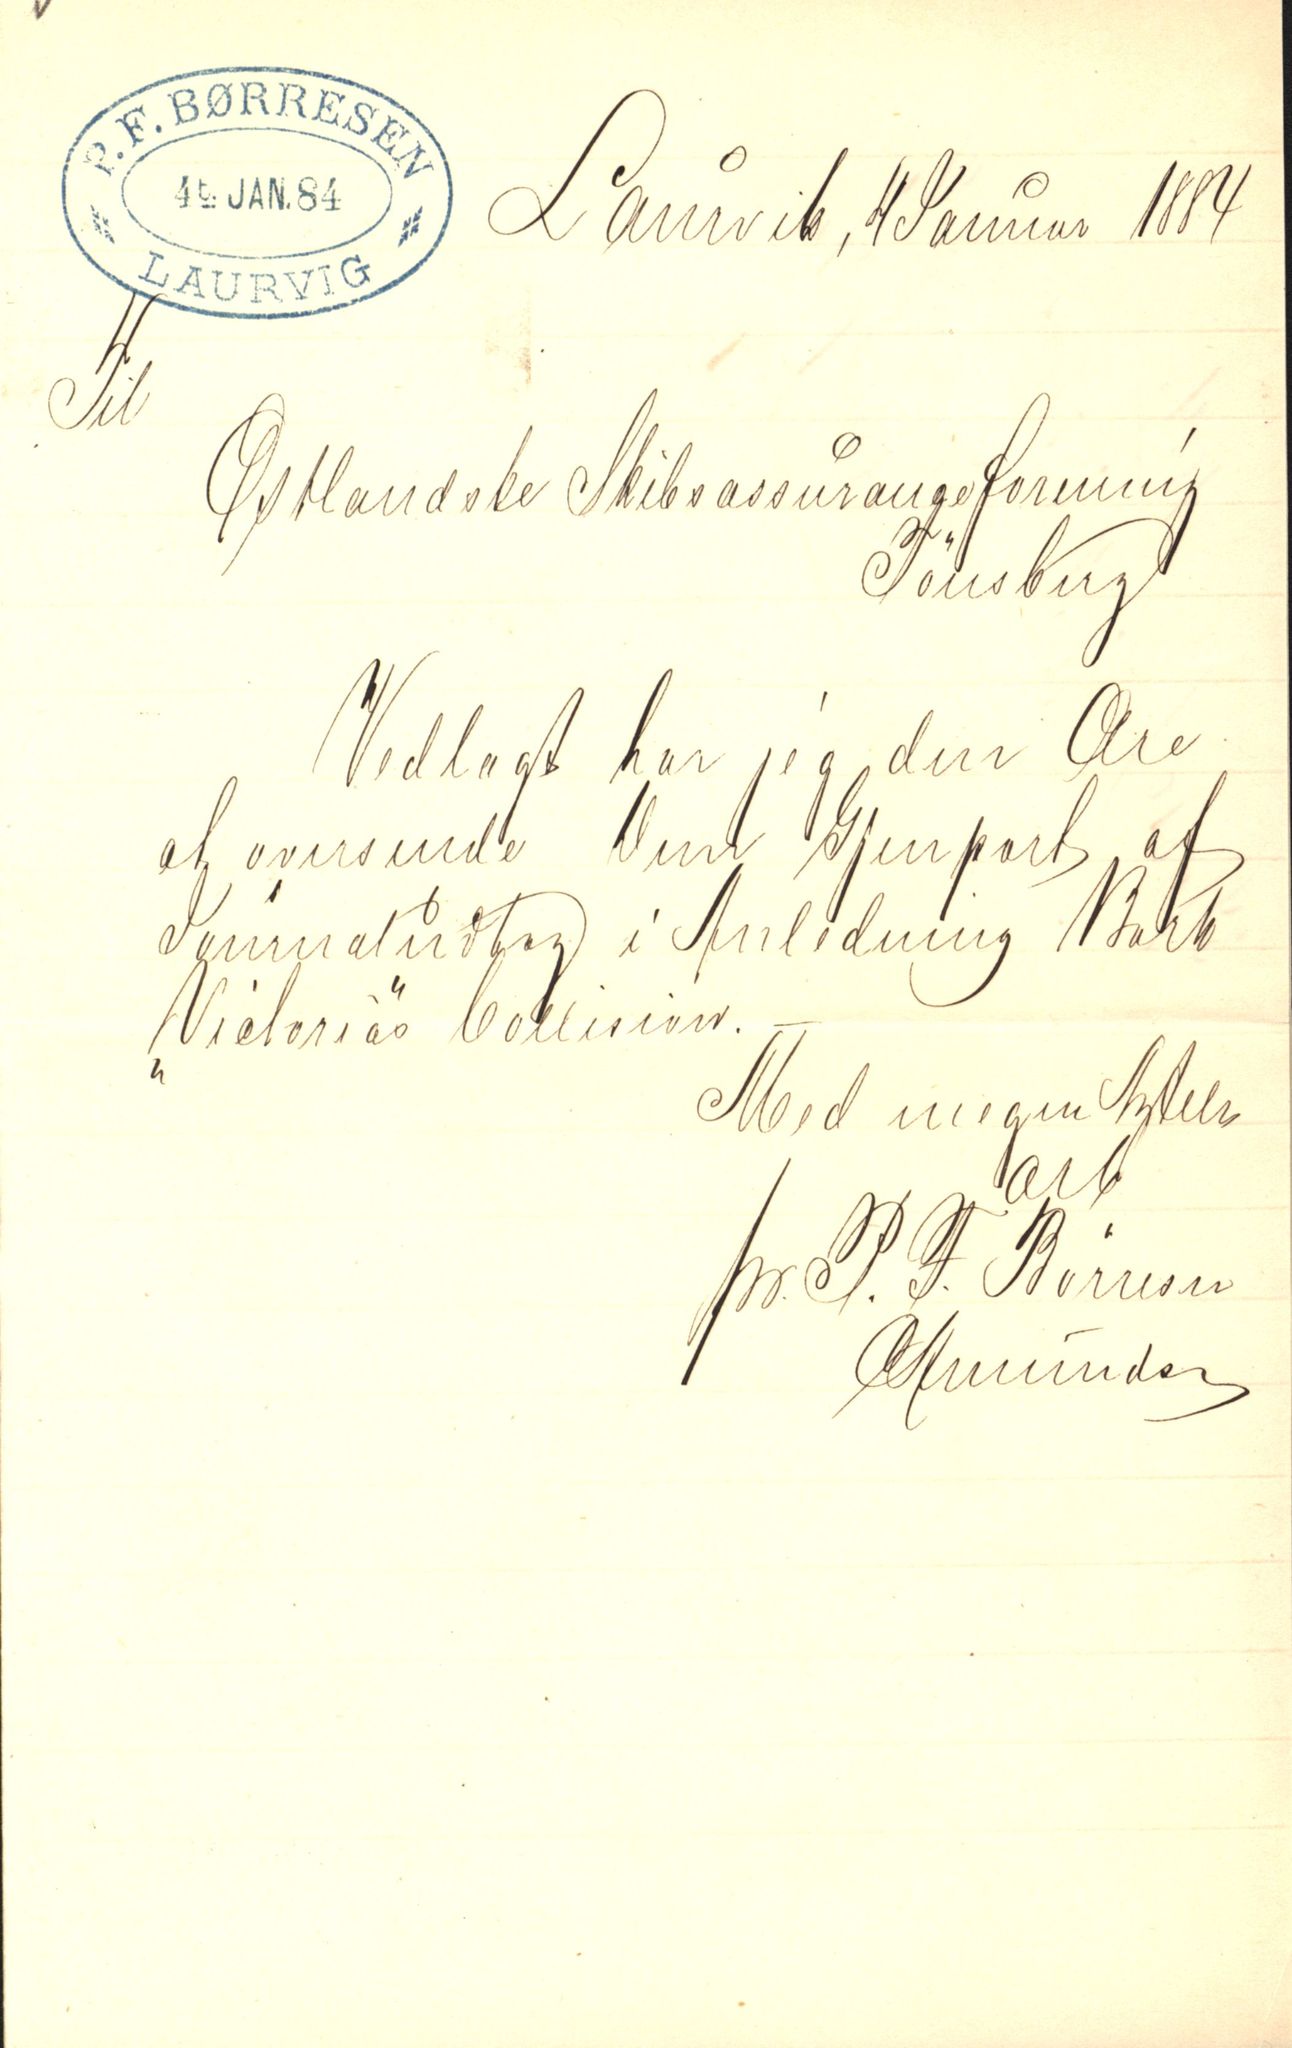 P. F. BØRRESEN
4 JAN. 84
LAURVIG
Laurvik, 4 Januar 1884
Til
Østlandske Skibsassurangeforening
Tönsberg
Vedlagt har jeg den Ære
at oversende Dem Gjenpart af
Journaludtog i Anledning Bark
"Victorias" Collision. —
Med megen Agtelse
ærb
pr. P. F. Börresen
Amundsen